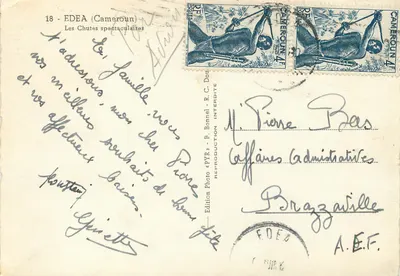 18 - EDEA (Cameroun)
Les Chutes spectaculaires
La famille, vous
t'adressons, mon cher Pierre
nos meilleurs souhaits de bonne fête
et nos affectueux baisers.
Ginette
Edition Photo "PYR" - P. Bonnel - R. C. Dou
REPRODUCTION INTERDITE
CAMEROUN
CAMEROUN
M. Pierre Bas
Affaires administratives
Brazzaville
A.E.F.
EDEA